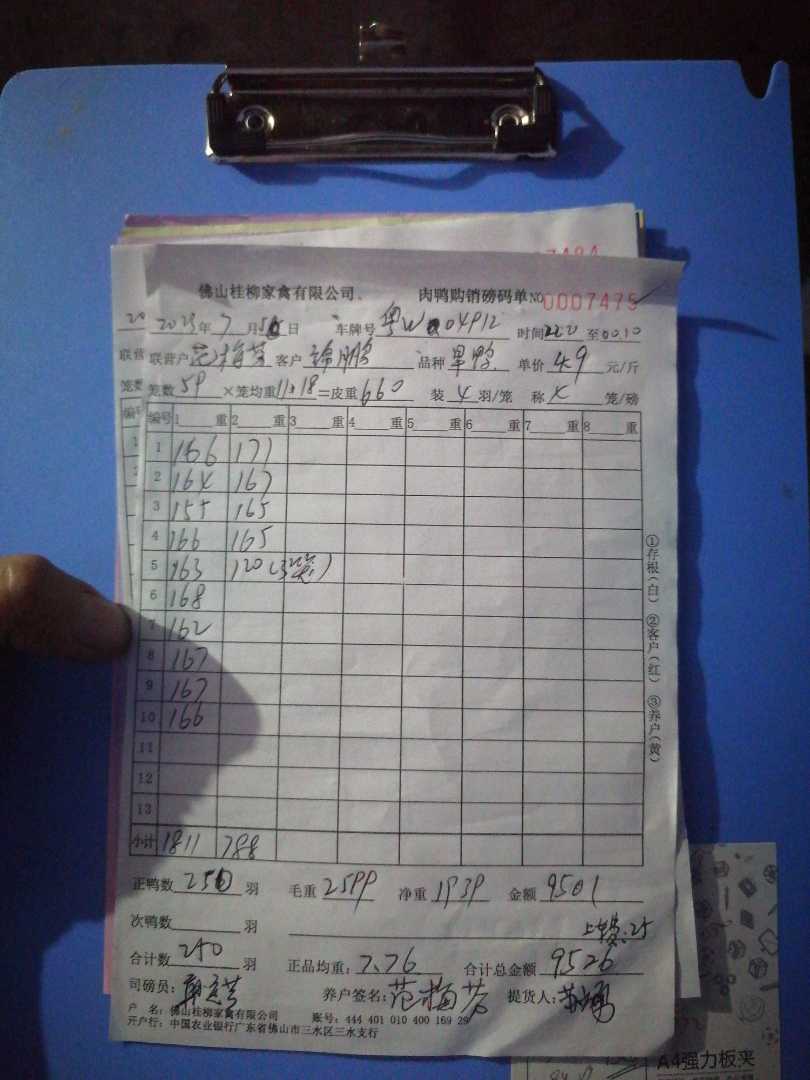 7484
佛山桂柳家禽有限公司、 肉鸭购销磅码单 NO 0007475
2023年 7 月 日 车牌号 粤W04912 时间 至 00:10
联营户 范梅芬 客户 品种 旱鸭 单价 4.9 元/斤
笼数 59 ×笼均重 11.18 =皮重 660 装 4 羽/笼 称 笼/磅
编号 1 重 2 重 3 重 4 重 5 重 6 重 7 重 8 重
1 166 171
2 164 167
3 155 165
4 166 165
5 163 120 (3笼)
6 168
7 162
8 167
9 167
10 166
11
12
13
小计 1811 788
①存根(白) ②客户(红) ③养户(黄)
正鸭数 250 羽 毛重 2599 净重 1939 金额 9501
次鸭数 羽 上车费:25
合计数 250 羽 正品均重: 7.76 合计总金额 9526
司磅员: 养户签名: 范梅芬 提货人:
户 名: 佛山桂柳家禽有限公司 账号: 444 401 010 400 169 29
开户行: 中国农业银行广东省佛山市三水区三水支行
A4强力板夹